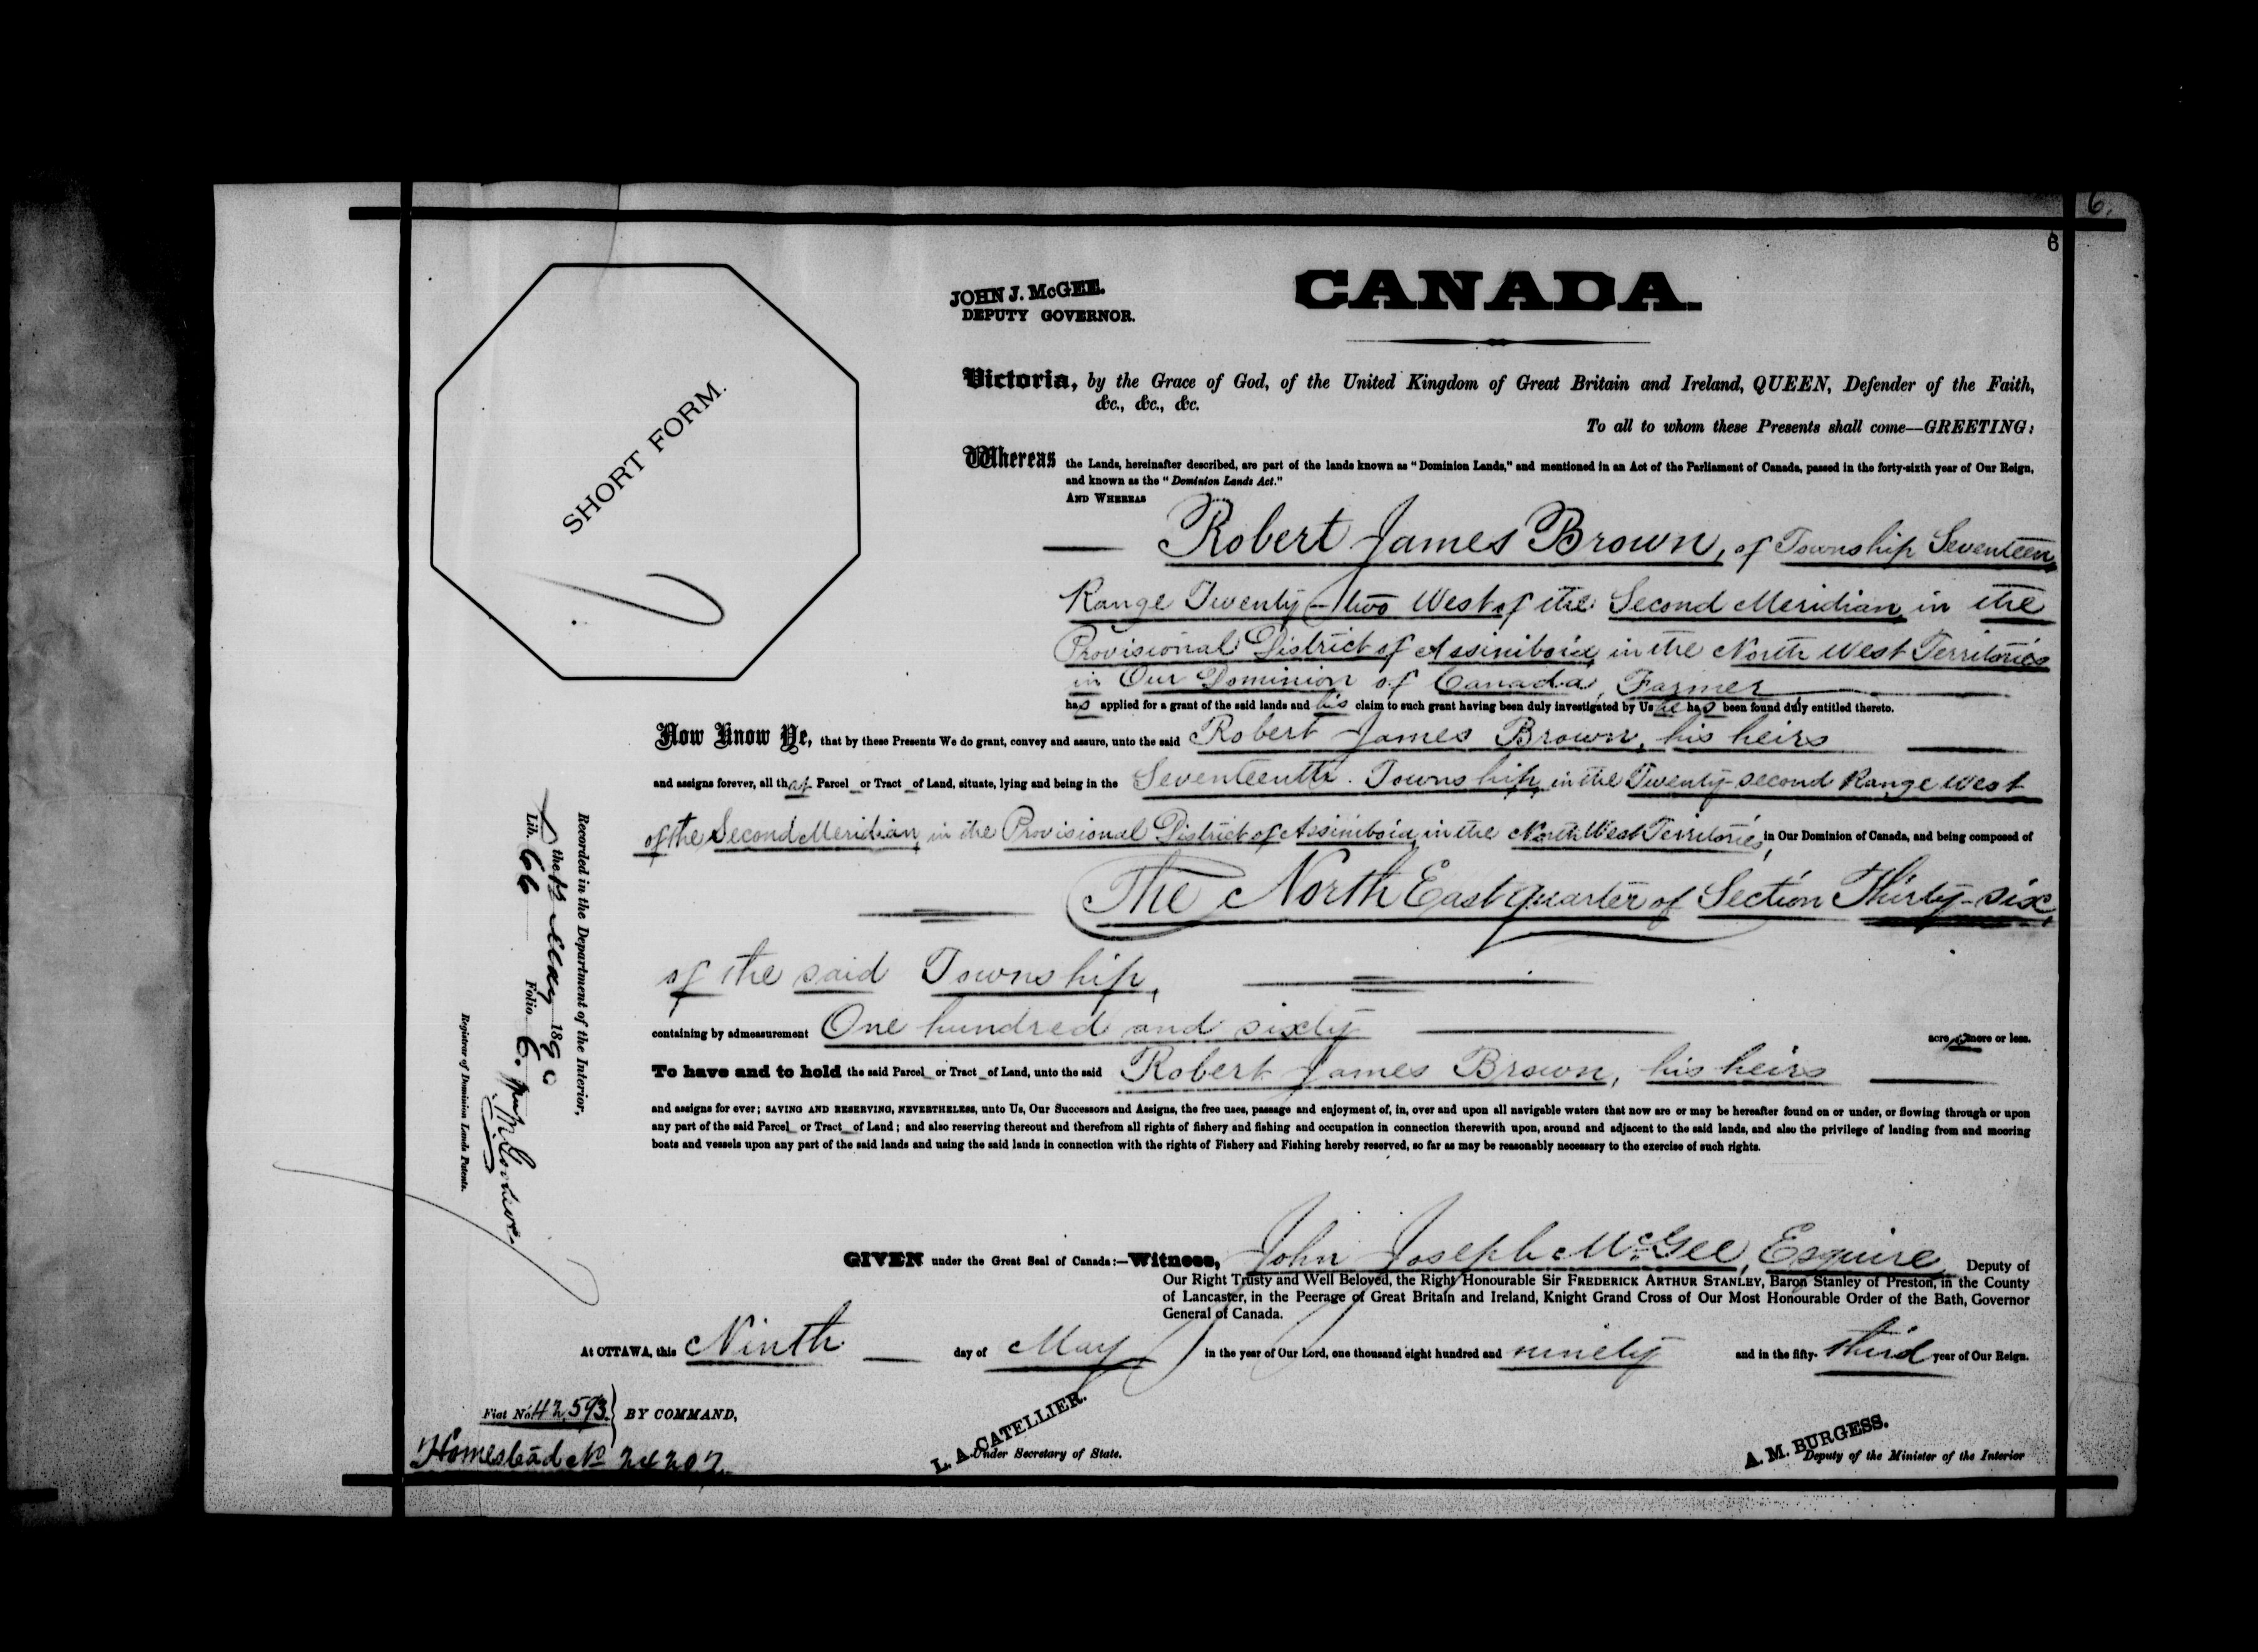 6.
6
JOHN J. McGEE.
DEPUTY GOVERNOR.
CANADA.
SHORT FORM.
Victoria, by the Grace of God, of the United Kingdom of Great Britain and Ireland, QUEEN, Defender of the Faith,
&c., &c., &c.
To all to whom these Presents shall come—GREETING:
Whereas the Lands, hereinafter described, are part of the lands known as "Dominion Lands," and mentioned in an Act of the Parliament of Canada, passed in the forty-sixth year of Our Reign,
and known as the "Dominion Lands Act."
AND WHEREAS
Robert James Brown, of Township Seventeen,
Range Twenty-two West of the Second Meridian, in the
Provisional District of Assiniboia, in the North West Territories
in Our Dominion of Canada, Farmer
has applied for a grant of the said lands and his claim to such grant having been duly investigated by Us he has been found duly entitled thereto.
Now Know Ye, that by these Presents We do grant, convey and assure, unto the said Robert James Brown, his heirs
and assigns forever, all that Parcel or Tract of Land, situate, lying and being in the Seventeenth Township, in the Twenty-second Range West
of the Second Meridian, in the Provisional District of Assiniboia, in the North West Territories, in Our Dominion of Canada, and being composed of
The North East quarter of Section Thirty-six,
of the said Township,
containing by admeasurement One hundred and sixty acres more or less.
To have and to hold the said Parcel or Tract of Land, unto the said Robert James Brown, his heirs
and assigns for ever; SAVING AND RESERVING, NEVERTHELESS, unto Us, Our Successors and Assigns, the free uses, passage and enjoyment of, in, over and upon all navigable waters that now are or may be hereafter found on or under, or flowing through or upon
any part of the said Parcel or Tract of Land; and also reserving thereout and therefrom all rights of fishery and fishing and occupation in connection therewith upon, around and adjacent to the said lands, and also the privilege of landing from and mooring
boats and vessels upon any part of the said lands and using the said lands in connection with the rights of Fishery and Fishing hereby reserved, so far as may be reasonably necessary to the exercise of such rights.
Recorded in the Department of the Interior,
the May 1890
Lib. 66 Folio 6.
Registrar of Dominion Lands Patents.
GIVEN under the Great Seal of Canada:—Witness, John Joseph McGee, Esquire, Deputy of
Our Right Trusty and Well Beloved, the Right Honourable Sir FREDERICK ARTHUR STANLEY, Baron Stanley of Preston, in the County
of Lancaster, in the Peerage of Great Britain and Ireland, Knight Grand Cross of Our Most Honourable Order of the Bath, Governor
General of Canada.
At OTTAWA, this Ninth day of May in the year of Our Lord, one thousand eight hundred and ninety and in the fifty-third year of Our Reign.
Fiat No. 42,593. BY COMMAND,
Homestead No 24207.
L. A. CATELLIER.
Under Secretary of State.
A. M. BURGESS.
Deputy of the Minister of the Interior